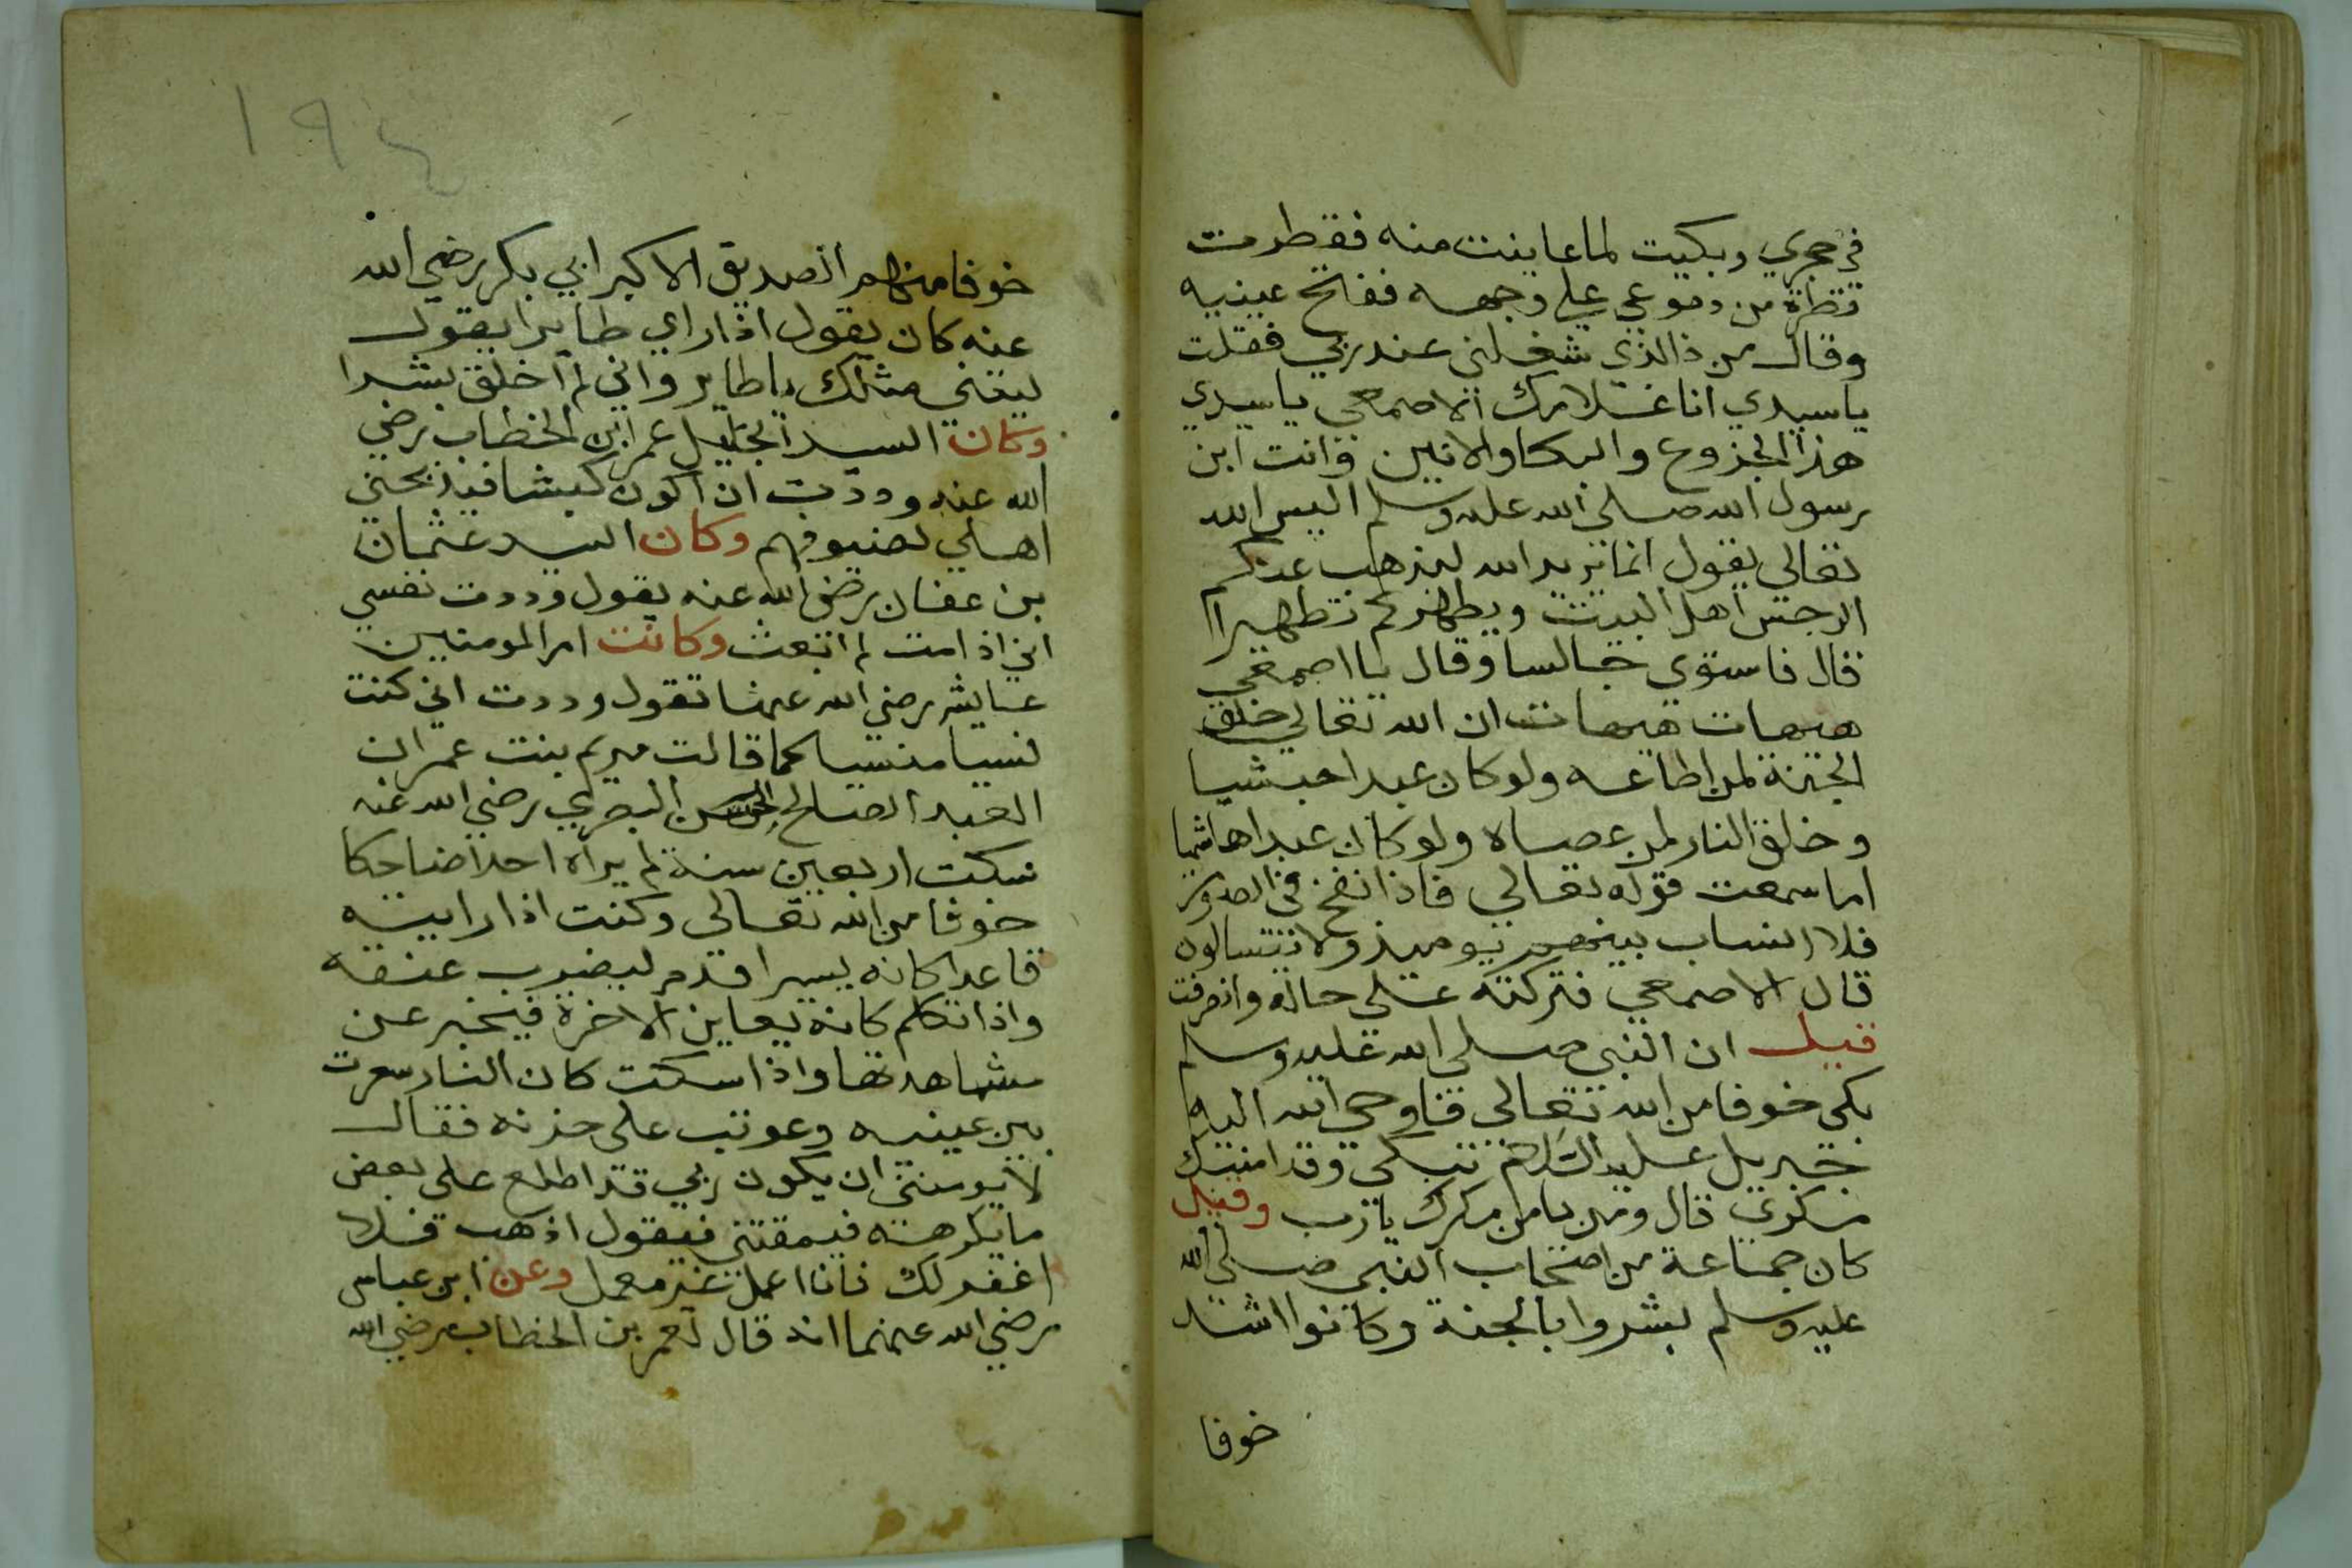 في حجري وبكيت لما عاينت منه فقطرت
قطرة من دموعي علي وجهه ففتح عينيه
وقال من ذا الذي شغلني عند ربي فقلت
يا سيدي انا غلامك الاصمعي يا سيدي
هذا الجزوع والبكا والانين وانت ابن
رسول الله صلي الله عليه وسلم اليس الله
تعالي يقول انما يريد الله ليذهب عنكم
الرجس اهل البيت ويطهركم تطهيرا
قال فاستوي جالسا وقال يا اصمعي
هيهات هيهات ان الله تعالي خلق
الجنة لمن اطاعه ولو كان عبدا حبشيا
وخلق النار لمن عصاه ولو كان عبدا هاشميا
اما سمعت قوله تعالي فاذا نفخ في الصور
فلا انساب بينهم يوميذ ولا يتسالون
قال الاصمعي فتركته علي حاله وانصرفت
قيل ان النبي صلي الله عليه وسلم
بكي خوفا من الله تعالي فاوحي الله اليه
جبريل عليه السلام تبكي وقد امنتك
مكري قال ومن يامن مكرك يا رب وقيل
كان جماعة من اصحاب النبي صلي الله
عليه وسلم بشروا بالجنة وكانوا اشد
خوفا
١٩٤
خوفا منهم الصديق الاكبر ابي بكر رضي الله
عنه كان يقول اذا راي طايرا يقول
ليتني مثلك يا طاير واني لم اخلق بشرا
وكان السيد الجليل عمر ابن الخطاب رضي
الله عنه وددت ان اكون كبشا فيذبحني
اهلي لضيوفهم وكان السيد عثمان
بن عفان رضي الله عنه يقول وددت نفسي
اني اذا مت لم ابعث وكانت ام المومنين
عايشه رضي الله عنها تقول وددت اني كنت
نسيا منسيا كما قالت مريم بنت عمران
العبد الصالح الحسن البصري رضي الله عنه
سكت اربعين سنة لم يراه احدا ضاحكا
خوفا من الله تعالي وكنت اذا رايته
قاعدا كانه يسيرا قدم ليضرب عنقه
واذا تكلم كانه يعاين الاخرة فيخبر عن
مشاهدتها واذا سكت كان النار سعرت
بين عينيه وعوتب علي حزنه فقال
لا يومنني ان يكون ربي قد اطلع علي بعض
ما يكرهه فيمقتني فيقول اذهب فلا
اغفر لك فانا اعمل غير معمل وعن ابن عباس
رضي الله عنهما انه قال لعمر بن الخطاب رضي الله